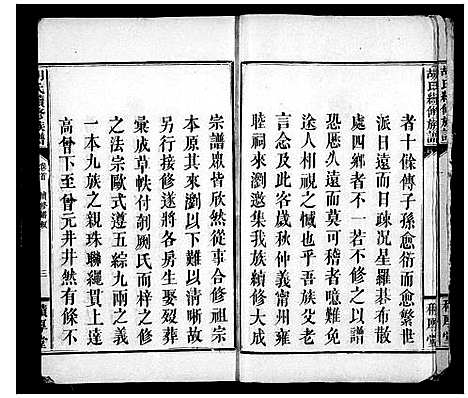 胡氏續修族譜
積厚堂
者十餘傳子孫愈衍而愈繁世
派日遠而日疎况星羅碁布散
處四鄉者不一若不修之以譜
恐愿久遠而莫可稽者噫難免
途人相視之憾也乎吾族父老
言念及此客歲秋仲義甯州雍
睦祠來瀏邀集我族續修大成
宗譜眾皆欣然從事合修祖宗
本原其來瀏以下難以清晰故
另行接修遂將各房生娶殁葬
彙成草帙付剞劂氏而梓之修
之法宗歐式遵五綜九兩之義
一本九族之親珠聯繩貫上達
高曾下至曾元井井然有條不
胡氏續修族譜
卷首
三
積厚堂